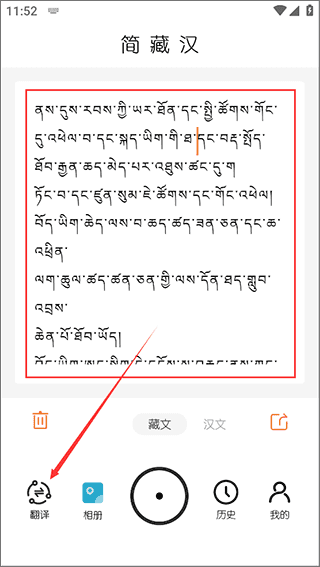 11:52
简藏汉
ནས་དུས་རབས་ཀྱི་ཡར་ཐོན་དང་སྤྱི་ཚོགས་གོང་
དུ་འཕེལ་བ་དང་སྐད་ཡིག་གི་ཐ་དང་བརྡ་སྤྲོད་
ཐོབ་རྒྱན་ཆད་མེད་པར་འཐུས་ཚང་དུ་ག
ཏོང་བ་དང་ཛུན་སུམ་ཇེ་ཚོགས་དང་གོང་འཕེལ།
བོད་ཡིག་ཆེད་ལས་བ་ཆད་ཚད་ཟན་ཅན་དང་ཆ་
འཕྲིན་
ལག་རྩལ་ཚད་ཚན་ཅན་གྱི་ལས་དོན་ཐད་གྲུབ་
འབྲས་
ཆེན་པོ་ཐོབ་ཡོད།
藏文 汉文
翻译 相册 历史 我的